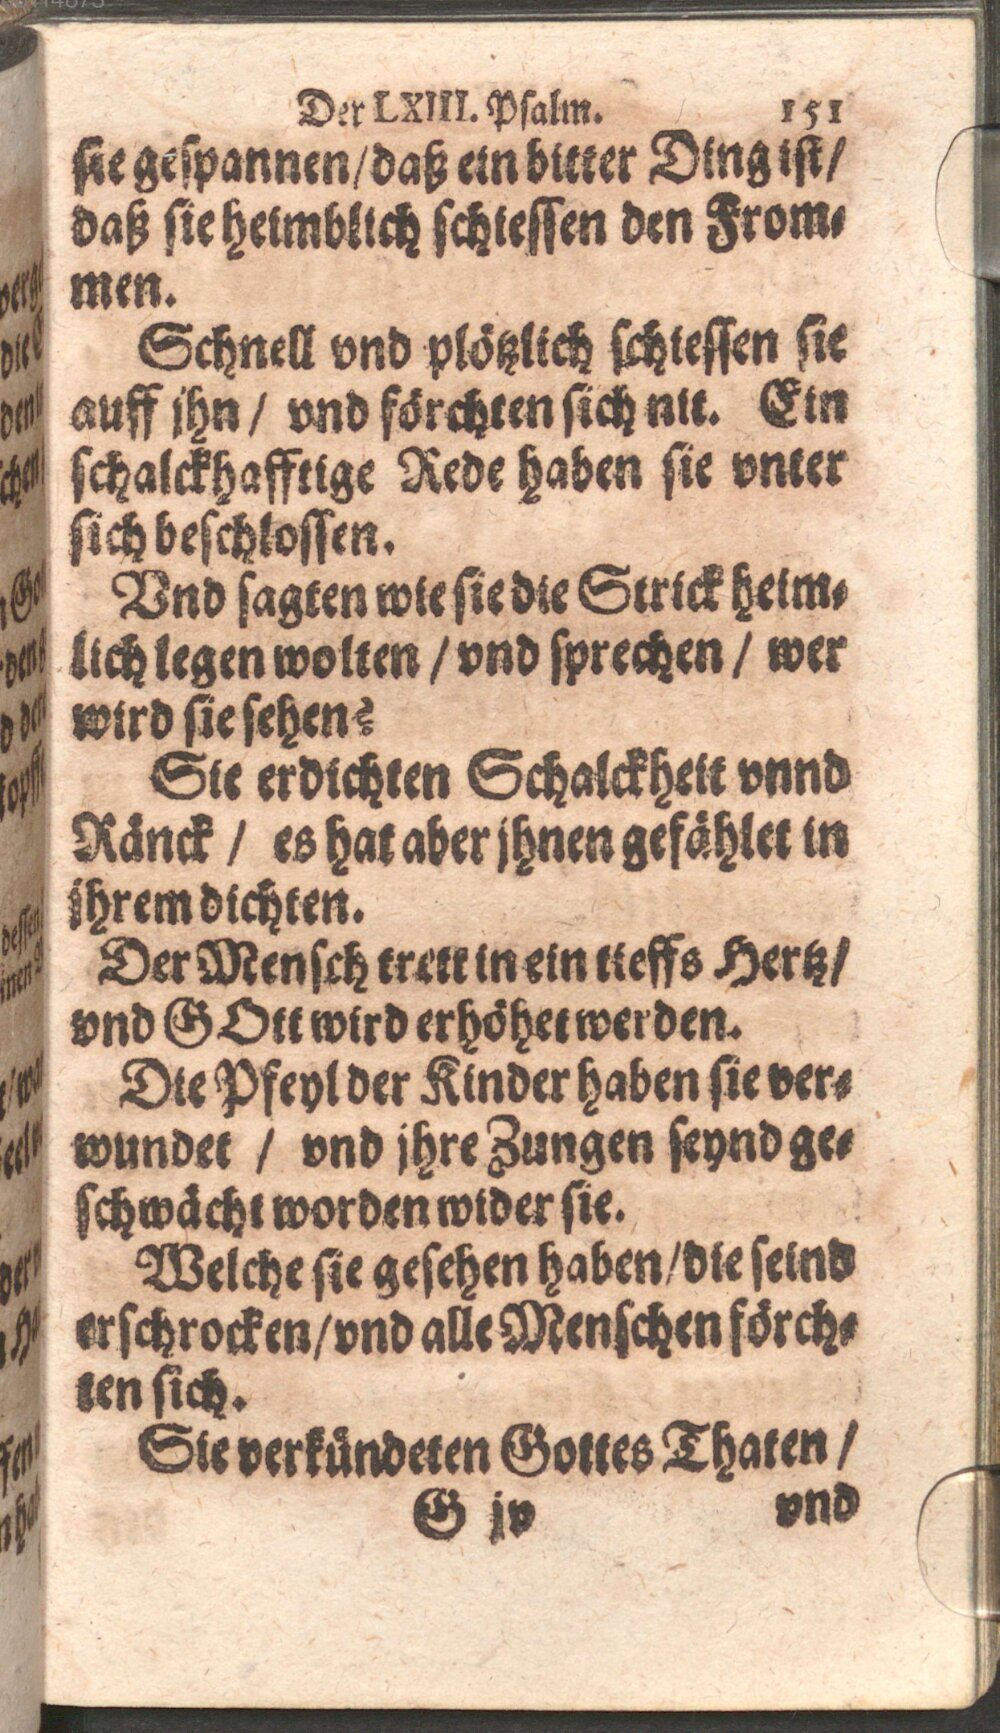 Der LXIII. Psalm. 151
sie gespannen/daß ein bitter Ding ist/
daß sie heimblich schiessen den From⸗
men.
Schnell vnd plötzlich schiessen sie
auff jhn / vnd förchten sich nit. Ein
schalckhafftige Rede haben sie vnter
sich beschlossen.
Vnd sagten wie sie die Strick heim⸗
lich legen wolten / vnd sprechen / wer
wird sie sehen?
Sie erdichten Schalckheit vnnd
Ränck / es hat aber jhnen gefählet in
jhrem dichten.
Der Mensch trett in ein tieffs Hertz/
vnd GOtt wird erhöhet werden.
Die Pfeyl der Kinder haben sie ver⸗
wundet / vnd jhre Zungen seynd ge⸗
schwächt worden wider sie.
Welche sie gesehen haben/die seind
erschrocken/vnd alle Menschen förch⸗
ten sich.
Sie verkündeten Gottes Thaten /
G jv vnd